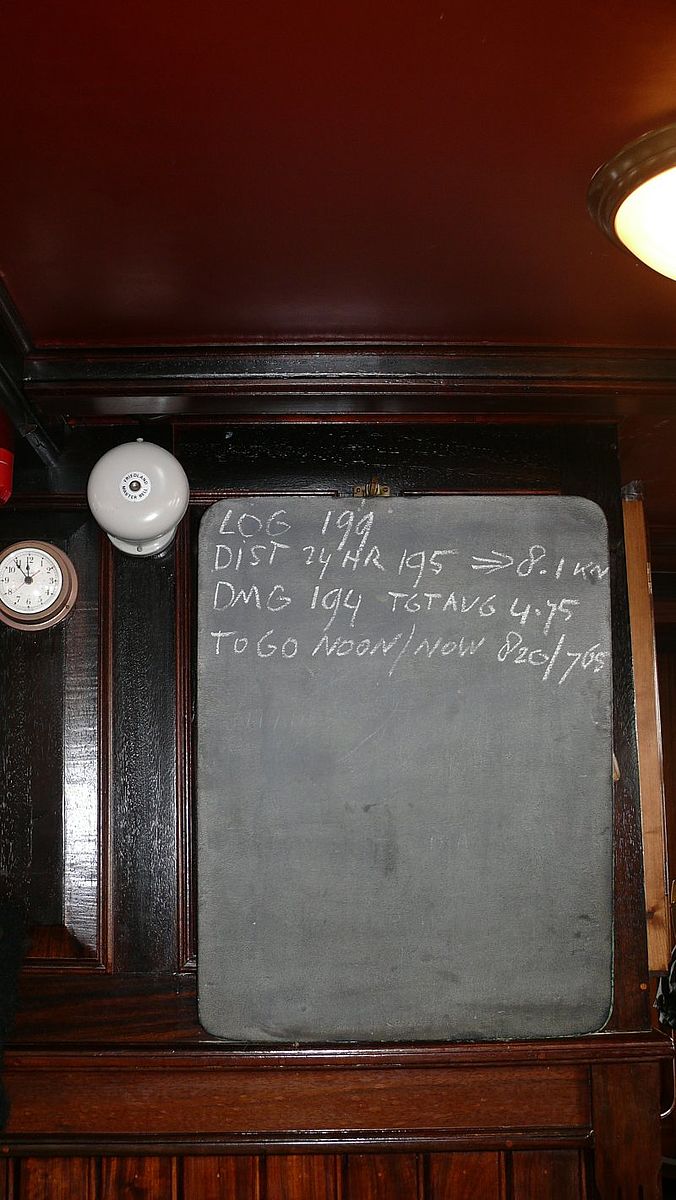 LOG 199
DIST 24 HR 195 ⇒ 8.1 KN
DMG 194 TGT AVG 4.75
TO GO NOON/NOW 820/765
FRIEDLAND
MASTER BELL